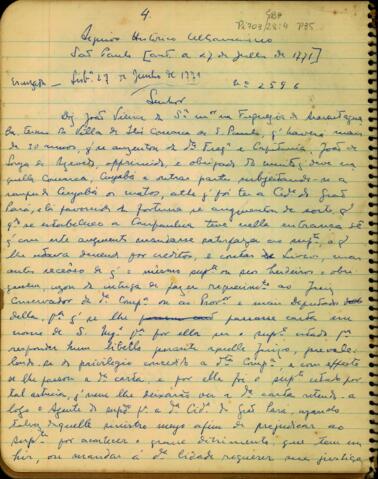 4.
P35
Arquivo Histórico Ultramarino
São Paulo [ant. a 27 de Julho de 1771]
Lisbª 27 de Junho de 1771 Nº 2596
Senhor
Diz João Vieira da Sª mºr na Freguezia de
termo da Villa de Comarca de S. Paulo, q' haverá mais
de 20 annos, q' se auzentou da dª Fregª e Capitania, João de
Souza de Azevedo, opprimido, e obrigado de muitas dividas
quella Comarca, Cuyabá e outras partes sugeitando-se a
romper de Cuyabá os matos, athe q' foi ter a Cidᵉ do Grão
Pará, e ahi favorecido da fortuna se augmentou de sorte, q'
qᵈᵒ se estabeleceo a Companhia teve nella entrancia
q' com este augmento mandasse satisfazer ao supᵗᵉ, a qᵐ
lhe ficára devendo por creditos, e contas de Livro, mas
antes receoso de q' o mesmo supᵗᵉ ou seus herdeiros o obri-
guem, uzou da de fazer requerimento ao Juiz
Conservador da dª Compª ou ao Provᵒʳ e mais Deputados
della, pª q' se lhe passasse carta em
nome de S. Magᵉ pª por ella ser o supᵗᵉ citado pª
responder hum libello perante aquelle Juizo, preva-
lendo-se do privilegio concedido a dª Compª, e com effeito
se lhe passou a dª carta, e por ella foi o supᵗᵉ citado por
tal astucia, q' nem lhe deixarão ver a dª carta
logo o Agente do supᵗᵉ pª a dª Cidᵉ do Grão Pará, uzando
talvez daquelle sinistro meyo afim de prejudicar ao
supᵗᵉ por conhecer o grande detrimento que tem em
hir, ou mandar á dª Cidade requerer sua justiça